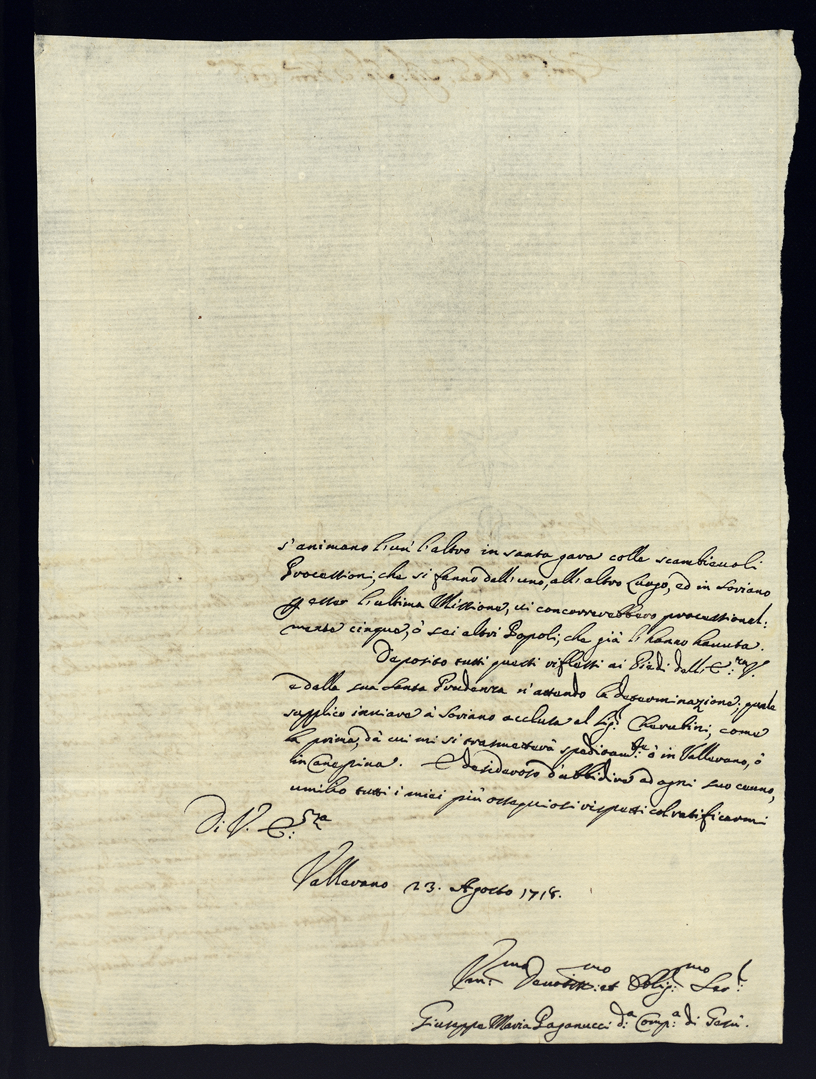 s'animano l'un' l'altro in santa gara colle scambieuoli
Processioni, che si fanno dell'uno, all'altro Luogo, ed in Soriano
p esser l'ultima Missione, ui concorrerebbero processional:
mente cinque, ò sei altri Popoli, che già l'hanno hauuta.
Deposito tutti questi riflessi ai Piedi dell'E:za V.
e dalla sua Santa Prudenza n'attendo la determinazione; quale
supplico inuiare à Soriano acclusa al Sig.r Cherubini, come
la prima, dà cui mi si trasmetterà speditam:te ò in Vallerano, ò
in Canepina. E desideroso d'ubbidire ad ogni suo cenno,
umilio tutti i miei più ossequiosi rispetti col ratificarmi
Di V. E:za
Vallerano 23. Agosto 1718.
Vm:mo Deuotiss:mo et Oblig:mo Ser:
Giuseppe Maria Paganucci d:a Comp:a di Gesù.